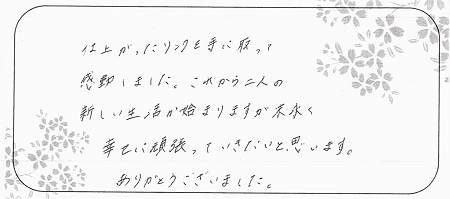 仕上がったリングを手に取って
感動しました。これから二人の
新しい生活が始まりますが末永く
幸せに頑張っていきたいと思います。
ありがとうございました。